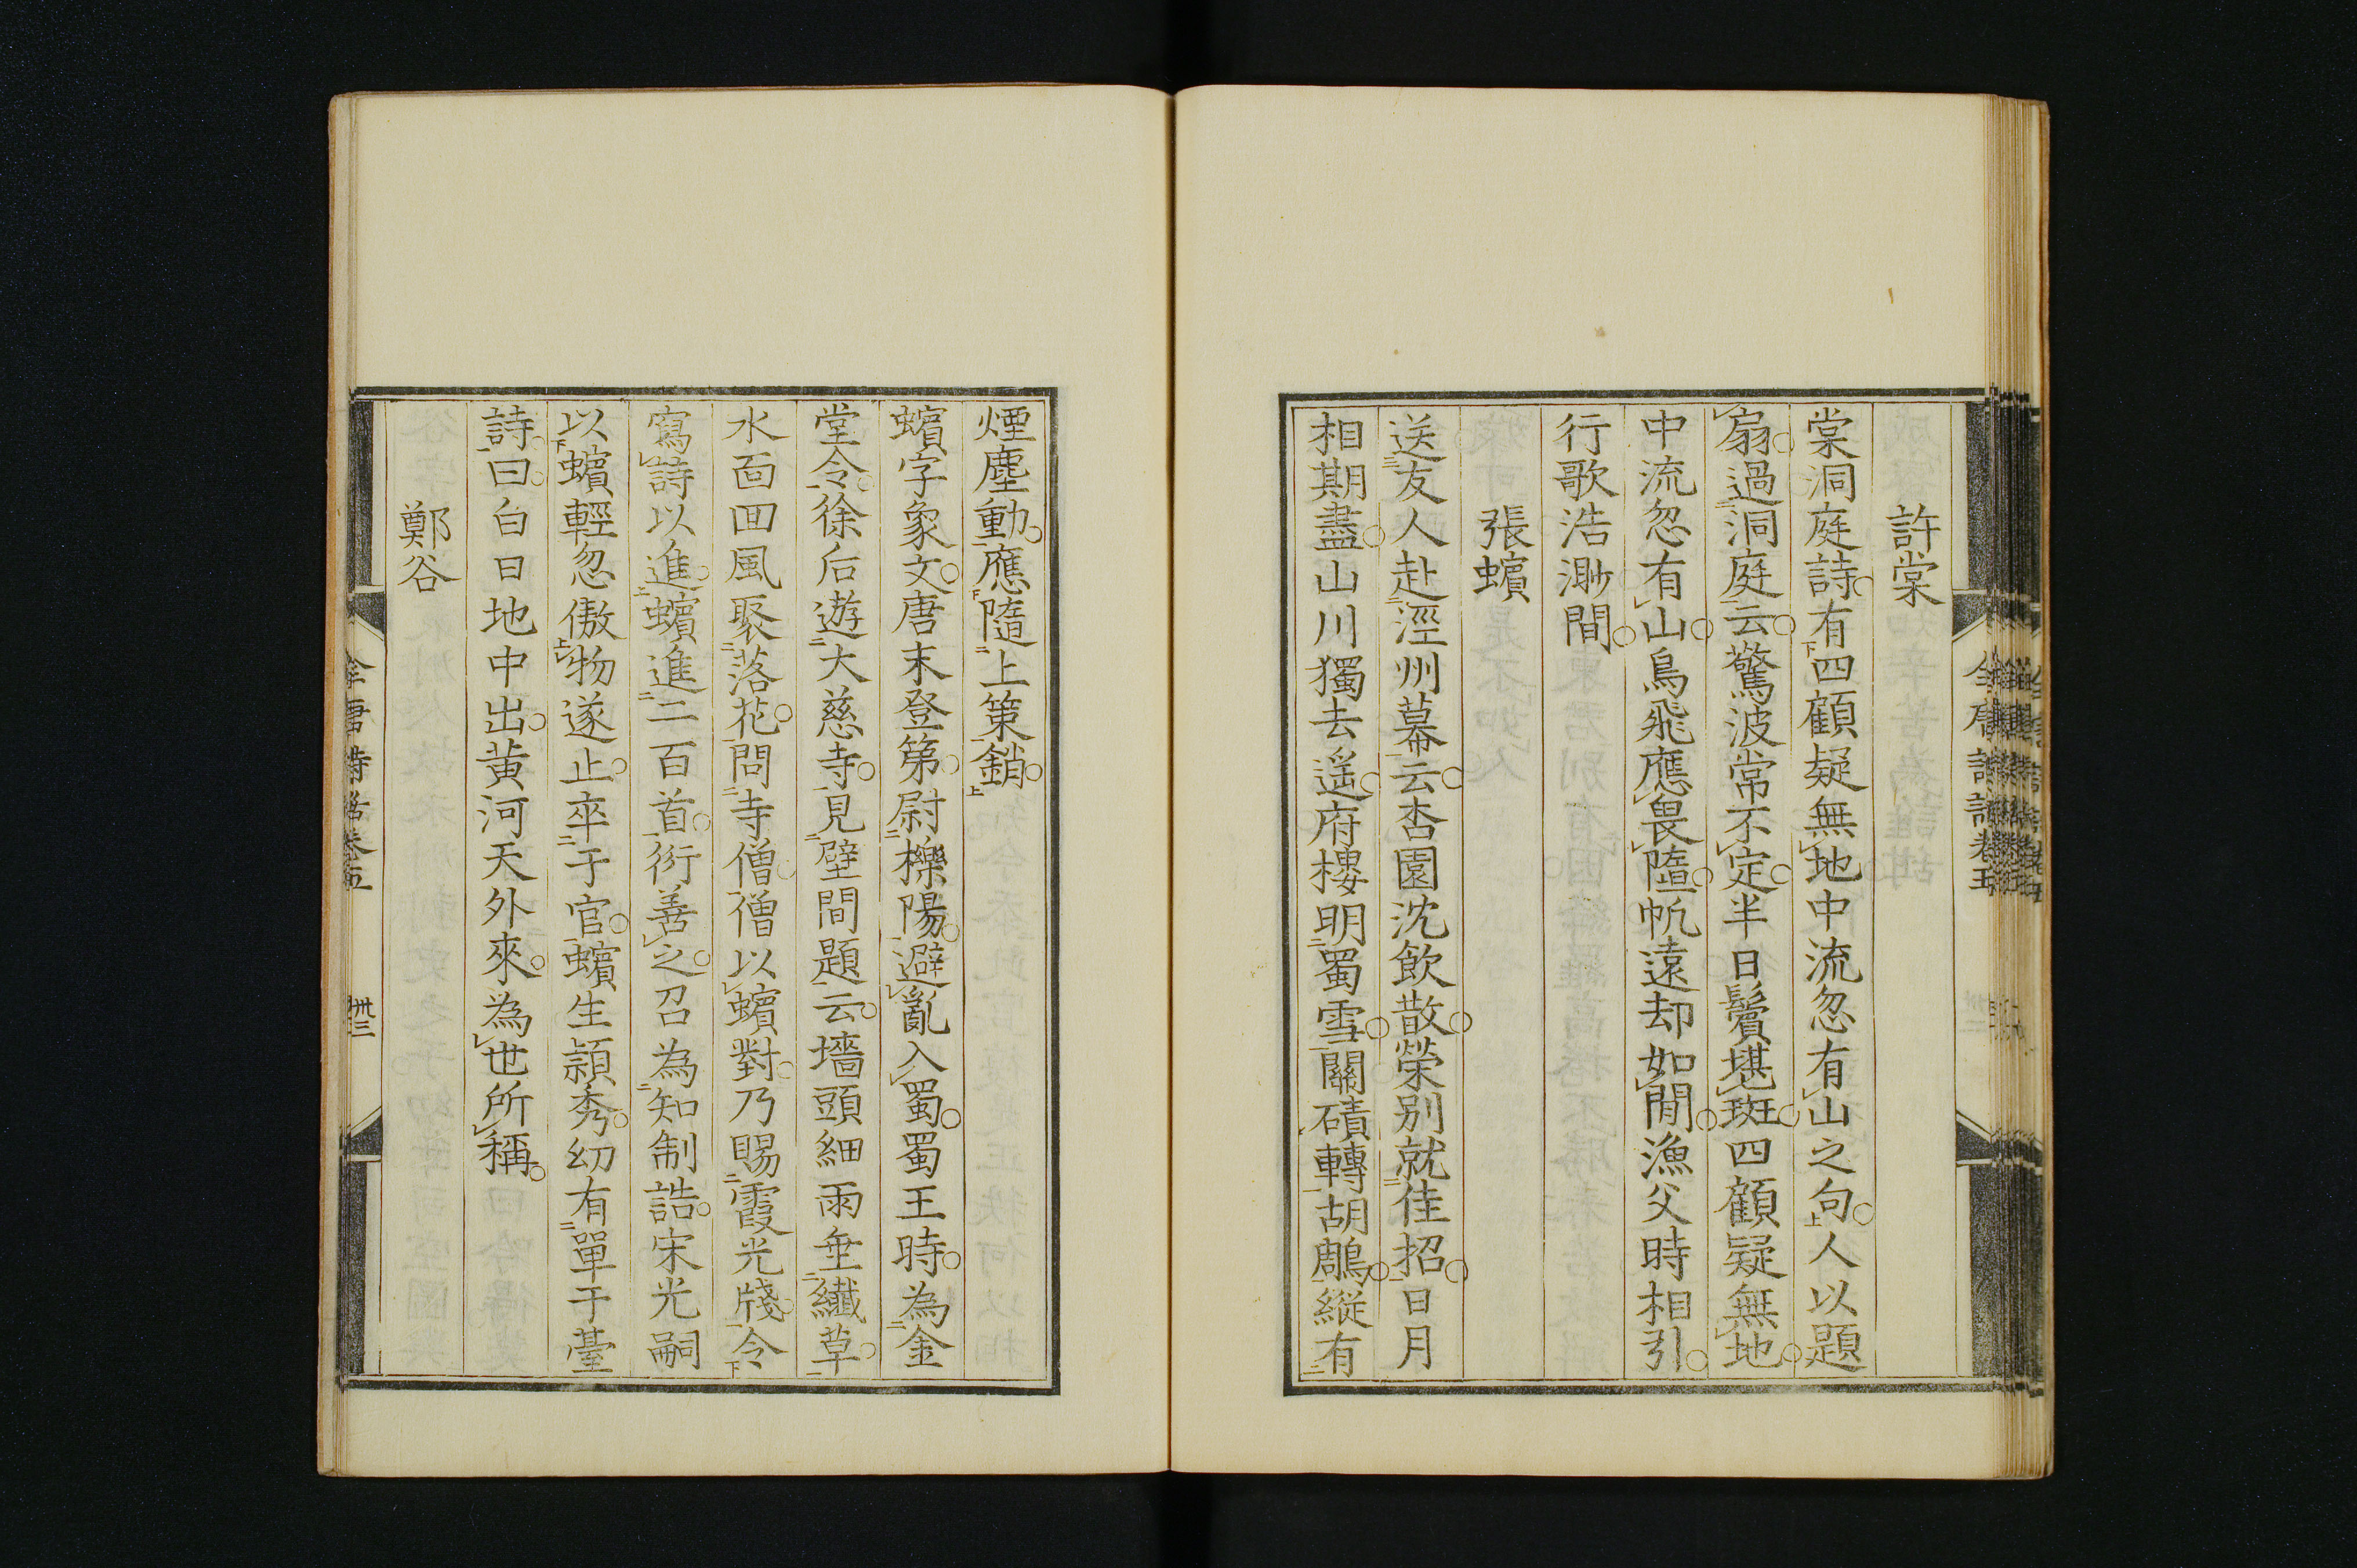 許棠
棠洞庭詩有四顧疑無地中流忽有山之句人以題
扇過洞庭云驚波常不定半日鬢堪斑四顧疑無地
中流忽有山鳥飛應畏隨帆遠却如閒漁父時相引
行歌浩渺間
張蠙
送友人赴涇州幕云杏園沈飲散榮别就佳招日月
相期盡山川獨去遥府樓明蜀雪關磧轉胡鵰縱有
煙塵動應隨上策銷
蠙字象文唐末登第尉櫟陽避亂入蜀蜀王時為金
堂令徐后遊大慈寺見壁間題云墻頭細雨垂纖草
水面回風聚落花問寺僧僧以蠙對乃賜霞光牋令
寫詩以進蠙進二百首衍善之召為知制誥宋光嗣
以蠙輕忽傲物遂止卒于官蠙生頴秀幼有單于臺
詩曰白日地中出黃河天外來為世所稱
鄭谷
全唐詩話卷五
卅三